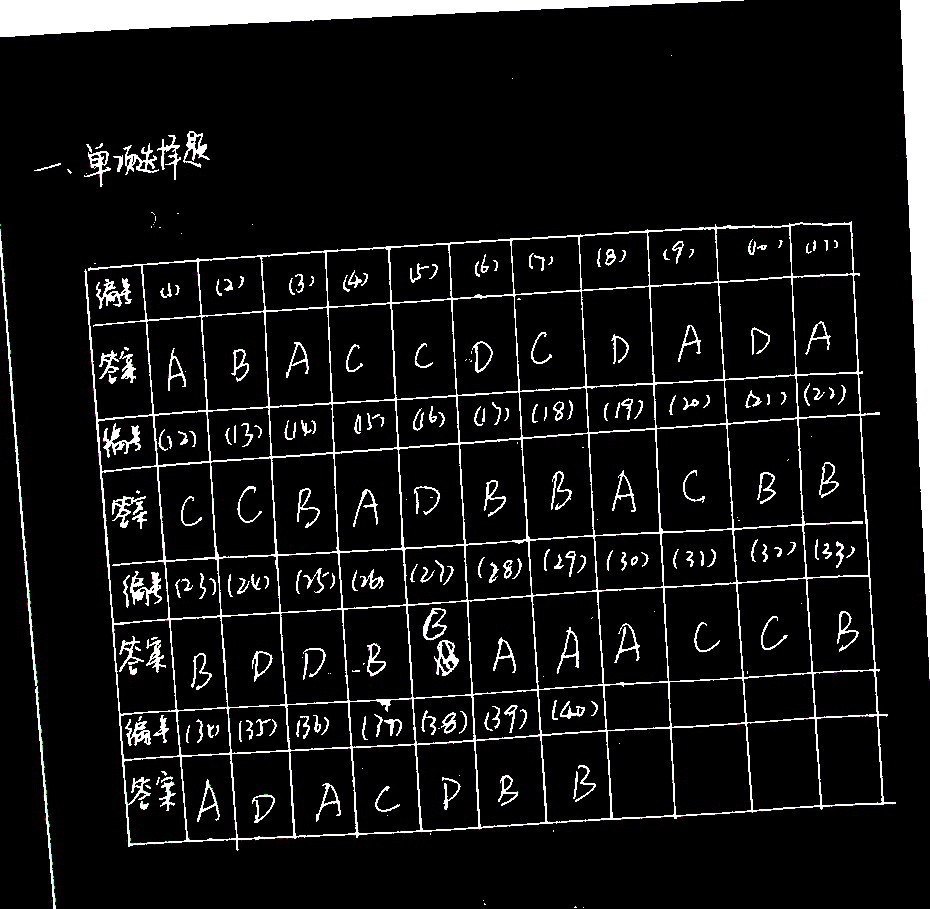 一、单项选择题
编号 (1) (2) (3) (4) (5) (6) (7) (8) (9) (10) (11)
答案 A B A C C D C D A D A
编号 (12) (13) (14) (15) (16) (17) (18) (19) (20) (21) (22)
答案 C C B A D B B A C B B
编号 (23) (24) (25) (26) (27) (28) (29) (30) (31) (32) (33)
答案 B D D B B A A A C C B
编号 (34) (35) (36) (37) (38) (39) (40)
答案 A D A C D B B